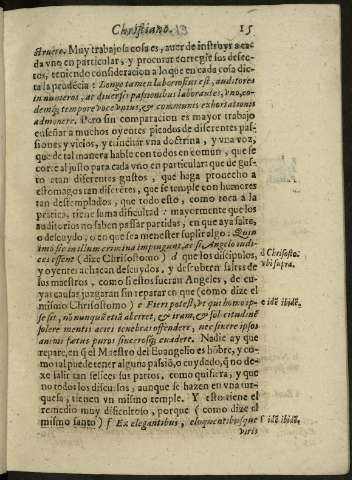 Christiano. 13 15
struere. Muy trabajosa cosa es, auer de instruyr a ca-
da vno en particular, y procurar corregir sus defec-
tos, teniendo consideracion a lo que en cada cosa dic-
ta la prudẽcia: Longe tamen laboriosius est, auditores
innumeros, ac diuersis passionibus laborantes, vno, eo-
demq; tempore voce vnius, & communis exhortationis
admonere. Pero sin comparacion es mayor trabajo
enseñar a muchos oyentes picados de diferentes pas-
siones y vicios, y enseñar vna doctrina, y vna voz,
que de tal manera hable con todos en comun, que se
corte al justo para cada vno en particular: que de gus-
to a tan diferentes gustos, que haga prouecho a
estomagos tan diferẽtes, que se temple con humores
tan destemplados, que todo esto, como toca a la
prática, tiene suma dificultad: mayormente que los
auditorios no saben passar partidas, en que aya falta,
o descuydo, o en que sea menester suplir algo: Quin
imò sic in illum crimina impingunt, ac si Angelo iudi-
ces essent (dize Chrisostomo) d que los discipulos,
y oyentes achacan descuydos, y descubren faltas de
sus maestros, como si estos fueran Angeles, de cu-
yas causas juzgaran sin reparar en que (como dize el
mismo Chrisostomo) e Fieri potest, vt qui homo ip-
se sit, nõ nunquã etiã aberret, & iram, & solicitudinẽ
solere mentis acies tenebras offendere, nec sinere ipsos
animi fœtus puros sincerosq; euadere. Nadie ay que
repare, en q̃ el Maestro del Euangelio es hõbre, y co-
mo tal puede tener alguna passiõ, o cuydado, q̃ no de-
xe salir tan felices sus partos, como quisiera, y que
no todos los discursos, aunque se hazen en vna tur-
quesa, tienen vn mismo temple. Y esto tiene el
remedio muy dificultoso, porque (como dize el
mismo santo) f Ex elegantibus, eloquentibusque
viris
d Chrisosto.
vbi supra.
e idẽ ibidẽ.
f idẽ ibidẽ.